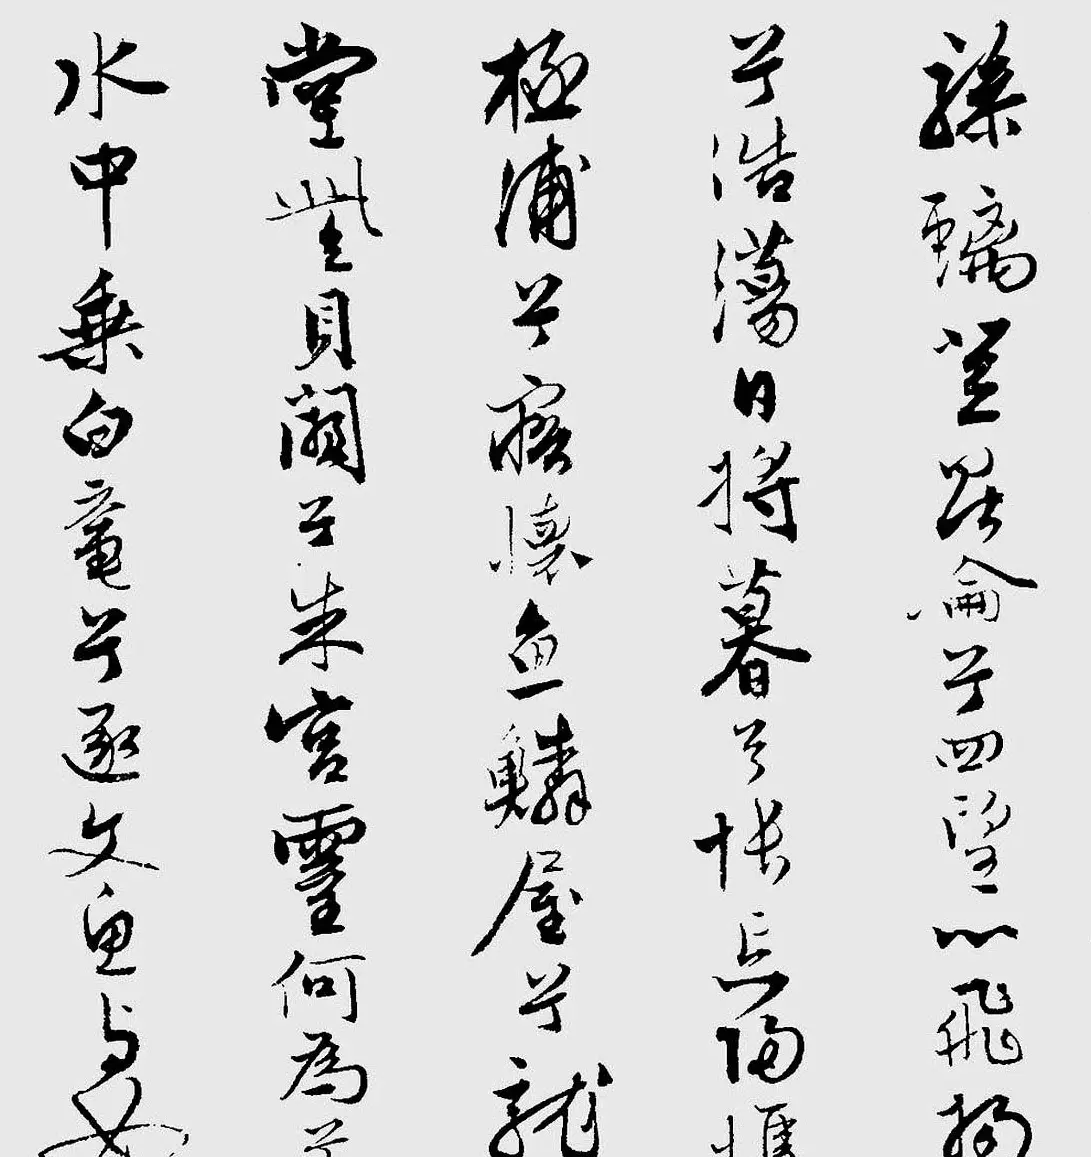 驂螭登昆侖兮四望心飛揚
兮浩蕩日將暮兮悵忘歸惟
極浦兮寤懷魚鱗屋兮龍
堂紫貝闕兮朱宮靈何為兮
水中乘白黿兮逐文魚与女